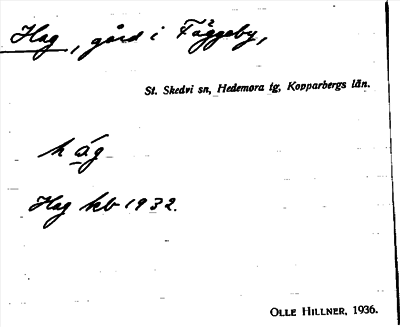 Hag, gård i Fäggeby,
St. Skedvi sn, Hedemora tg, Kopparbergs län.
hág
Hag kb 1932.
OLLE HILLNER, 1936.